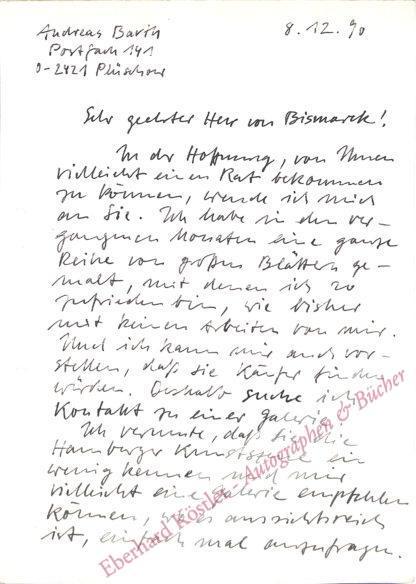 Andreas Barth
Postfach 141
D-2421 Plüschow
8.12.90
Sehr geehrter Herr von Bismarck!
In der Hoffnung, von Ihnen
vielleicht einen Rat bekommen
zu können, wende ich mich
an Sie. Ich habe in den ver-
gangenen Monaten eine ganze
Reihe von großen Blättern ge-
malt, mit denen ich so
zufrieden bin, wie bisher
mit keinen Arbeiten von mir.
Und ich kann mir auch vor-
stellen, daß sie Käufer finden
würden. Deshalb suche ich
Kontakt zu einer Galerie.
Ich vermute, daß Sie die
Hamburger Kunstszene ein
wenig kennen und mir
vielleicht eine Galerie empfehlen
können, wo es aussichtsreich
ist, einfach mal anzufragen.
Eberhard Köstler Autographen & Bücher